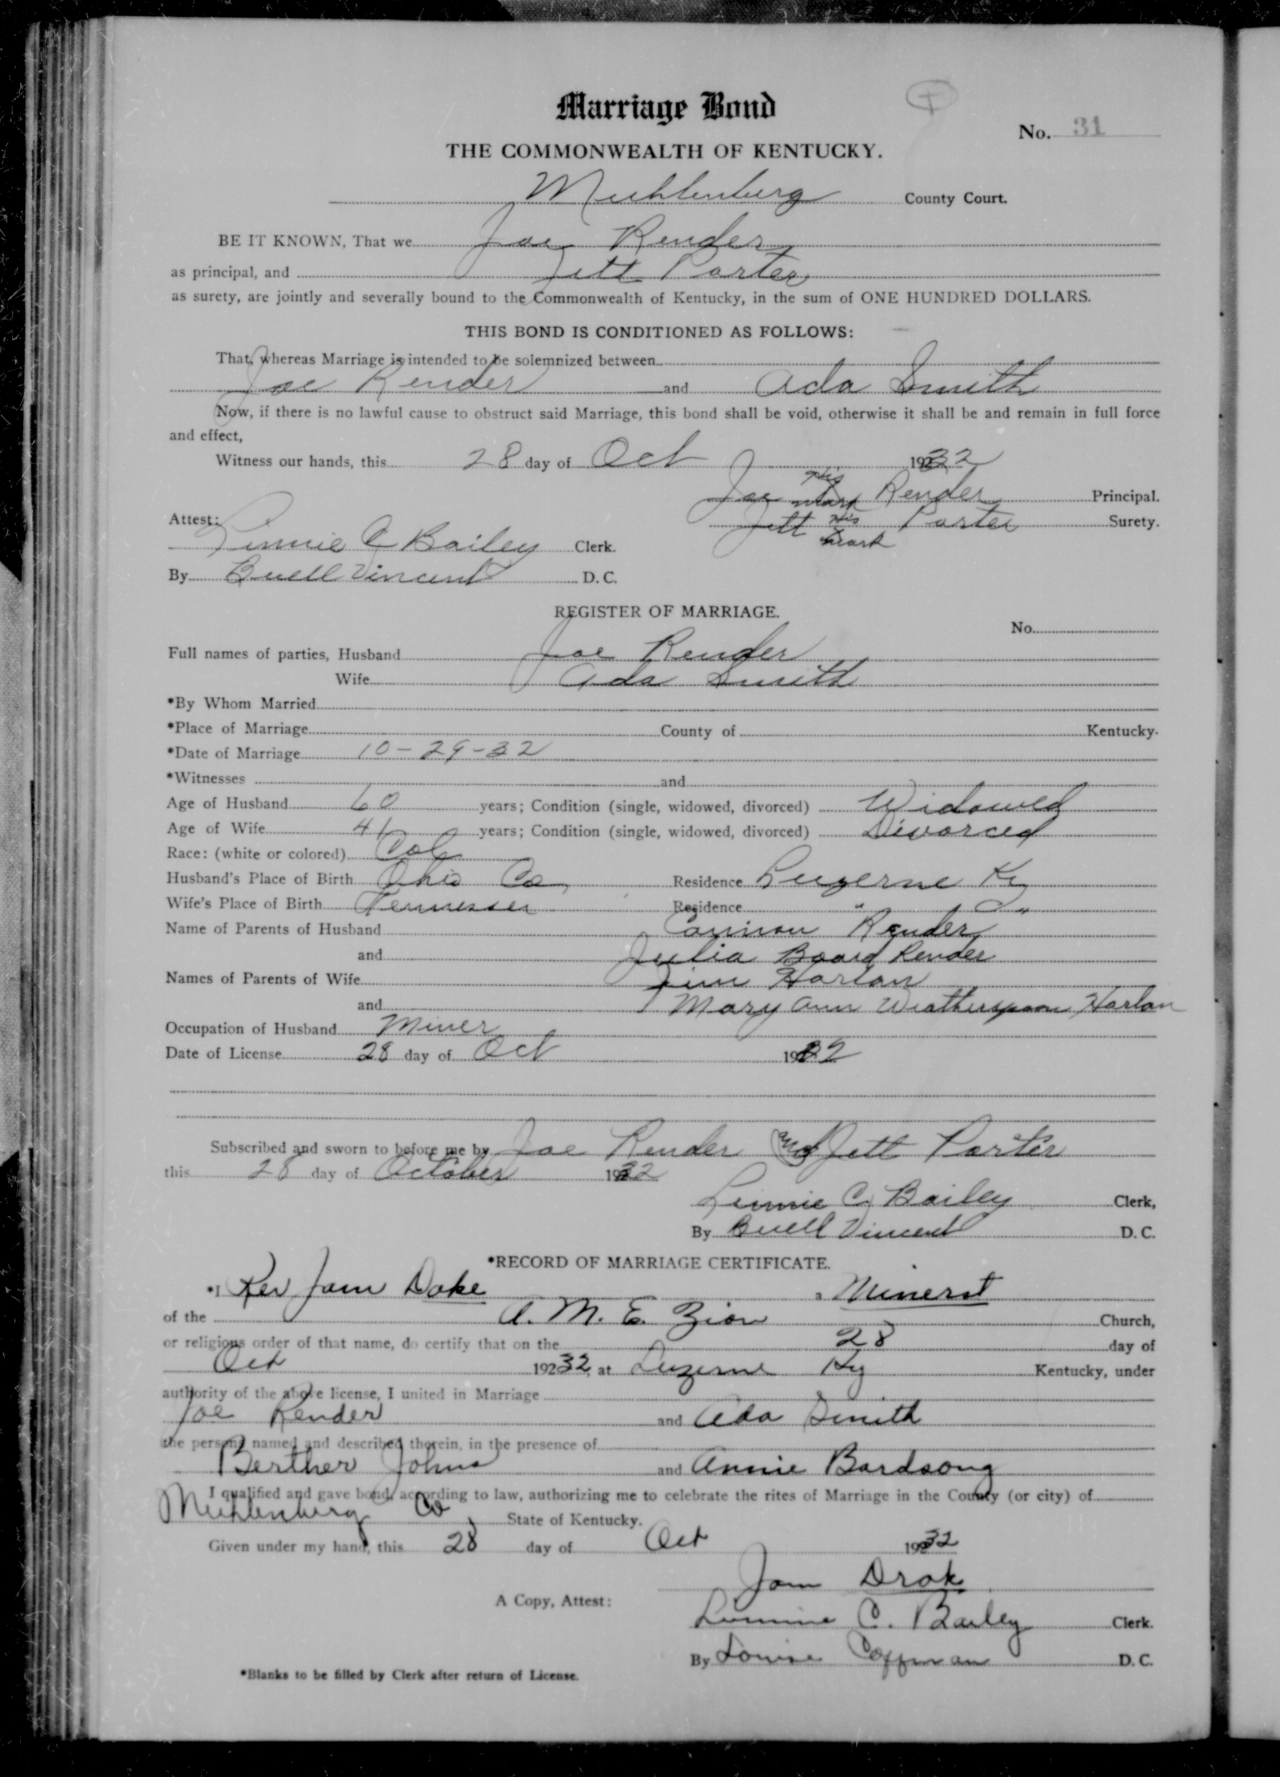 Marriage Bond
No. 31
THE COMMONWEALTH OF KENTUCKY.
Muhlenburg County Court.
BE IT KNOWN, That we Joe Render
as principal, and Jett Porter
as surety, are jointly and severally bound to the Commonwealth of Kentucky, in the sum of ONE HUNDRED DOLLARS.
THIS BOND IS CONDITIONED AS FOLLOWS:
That, whereas Marriage is intended to be solemnized between
Joe Render and Ada Smith
Now, if there is no lawful cause to obstruct said Marriage, this bond shall be void, otherwise it shall be and remain in full force
and effect,
Witness our hands, this 28 day of Oct 1932
Joe his X mark Render Principal.
Attest: Jett his X mark Porter Surety.
Linnie C Bailey Clerk.
By Buell Vincent D. C.
REGISTER OF MARRIAGE.
No.
Full names of parties, Husband Joe Render
Wife Ada Smith
*By Whom Married
*Place of Marriage County of Kentucky.
*Date of Marriage 10-29-32
*Witnesses and
Age of Husband 60 years; Condition (single, widowed, divorced) Widowed
Age of Wife 46 years; Condition (single, widowed, divorced) Divorced
Race: (white or colored) Col
Husband's Place of Birth Ohio Co, Residence Luzerne Ky
Wife's Place of Birth Tennessee Residence " "
Name of Parents of Husband Cannon Render
and Julia Board Render
Names of Parents of Wife Jim Harlan
and Mary Ann Weatherspoon Harlan
Occupation of Husband Miner
Date of License 28 day of Oct 1932
Subscribed and sworn to before me by Joe Render and Jett Porter
this 28 day of October 1932
Linnie C Bailey Clerk,
By Buell Vincent D. C.
*RECORD OF MARRIAGE CERTIFICATE.
*I Rev Jam Dake a Minerst
of the A. M. E. Zion Church,
or religious order of that name, do certify that on the 28 day of
Oct 19232, at Luzerne Ky Kentucky, under
authority of the above license, I united in Marriage
Joe Render and Ada Smith
the persons named and described therein, in the presence of
Berther Johns and Annie Bardsong
I qualified and gave bond, according to law, authorizing me to celebrate the rites of Marriage in the County (or city) of
Muhlenburg Co, State of Kentucky.
Given under my hand, this 28 day of Oct 1932
Jam Drak
A Copy, Attest:
Linnie C. Bailey Clerk.
By Louise Coffman D. C.
*Blanks to be filled by Clerk after return of License.